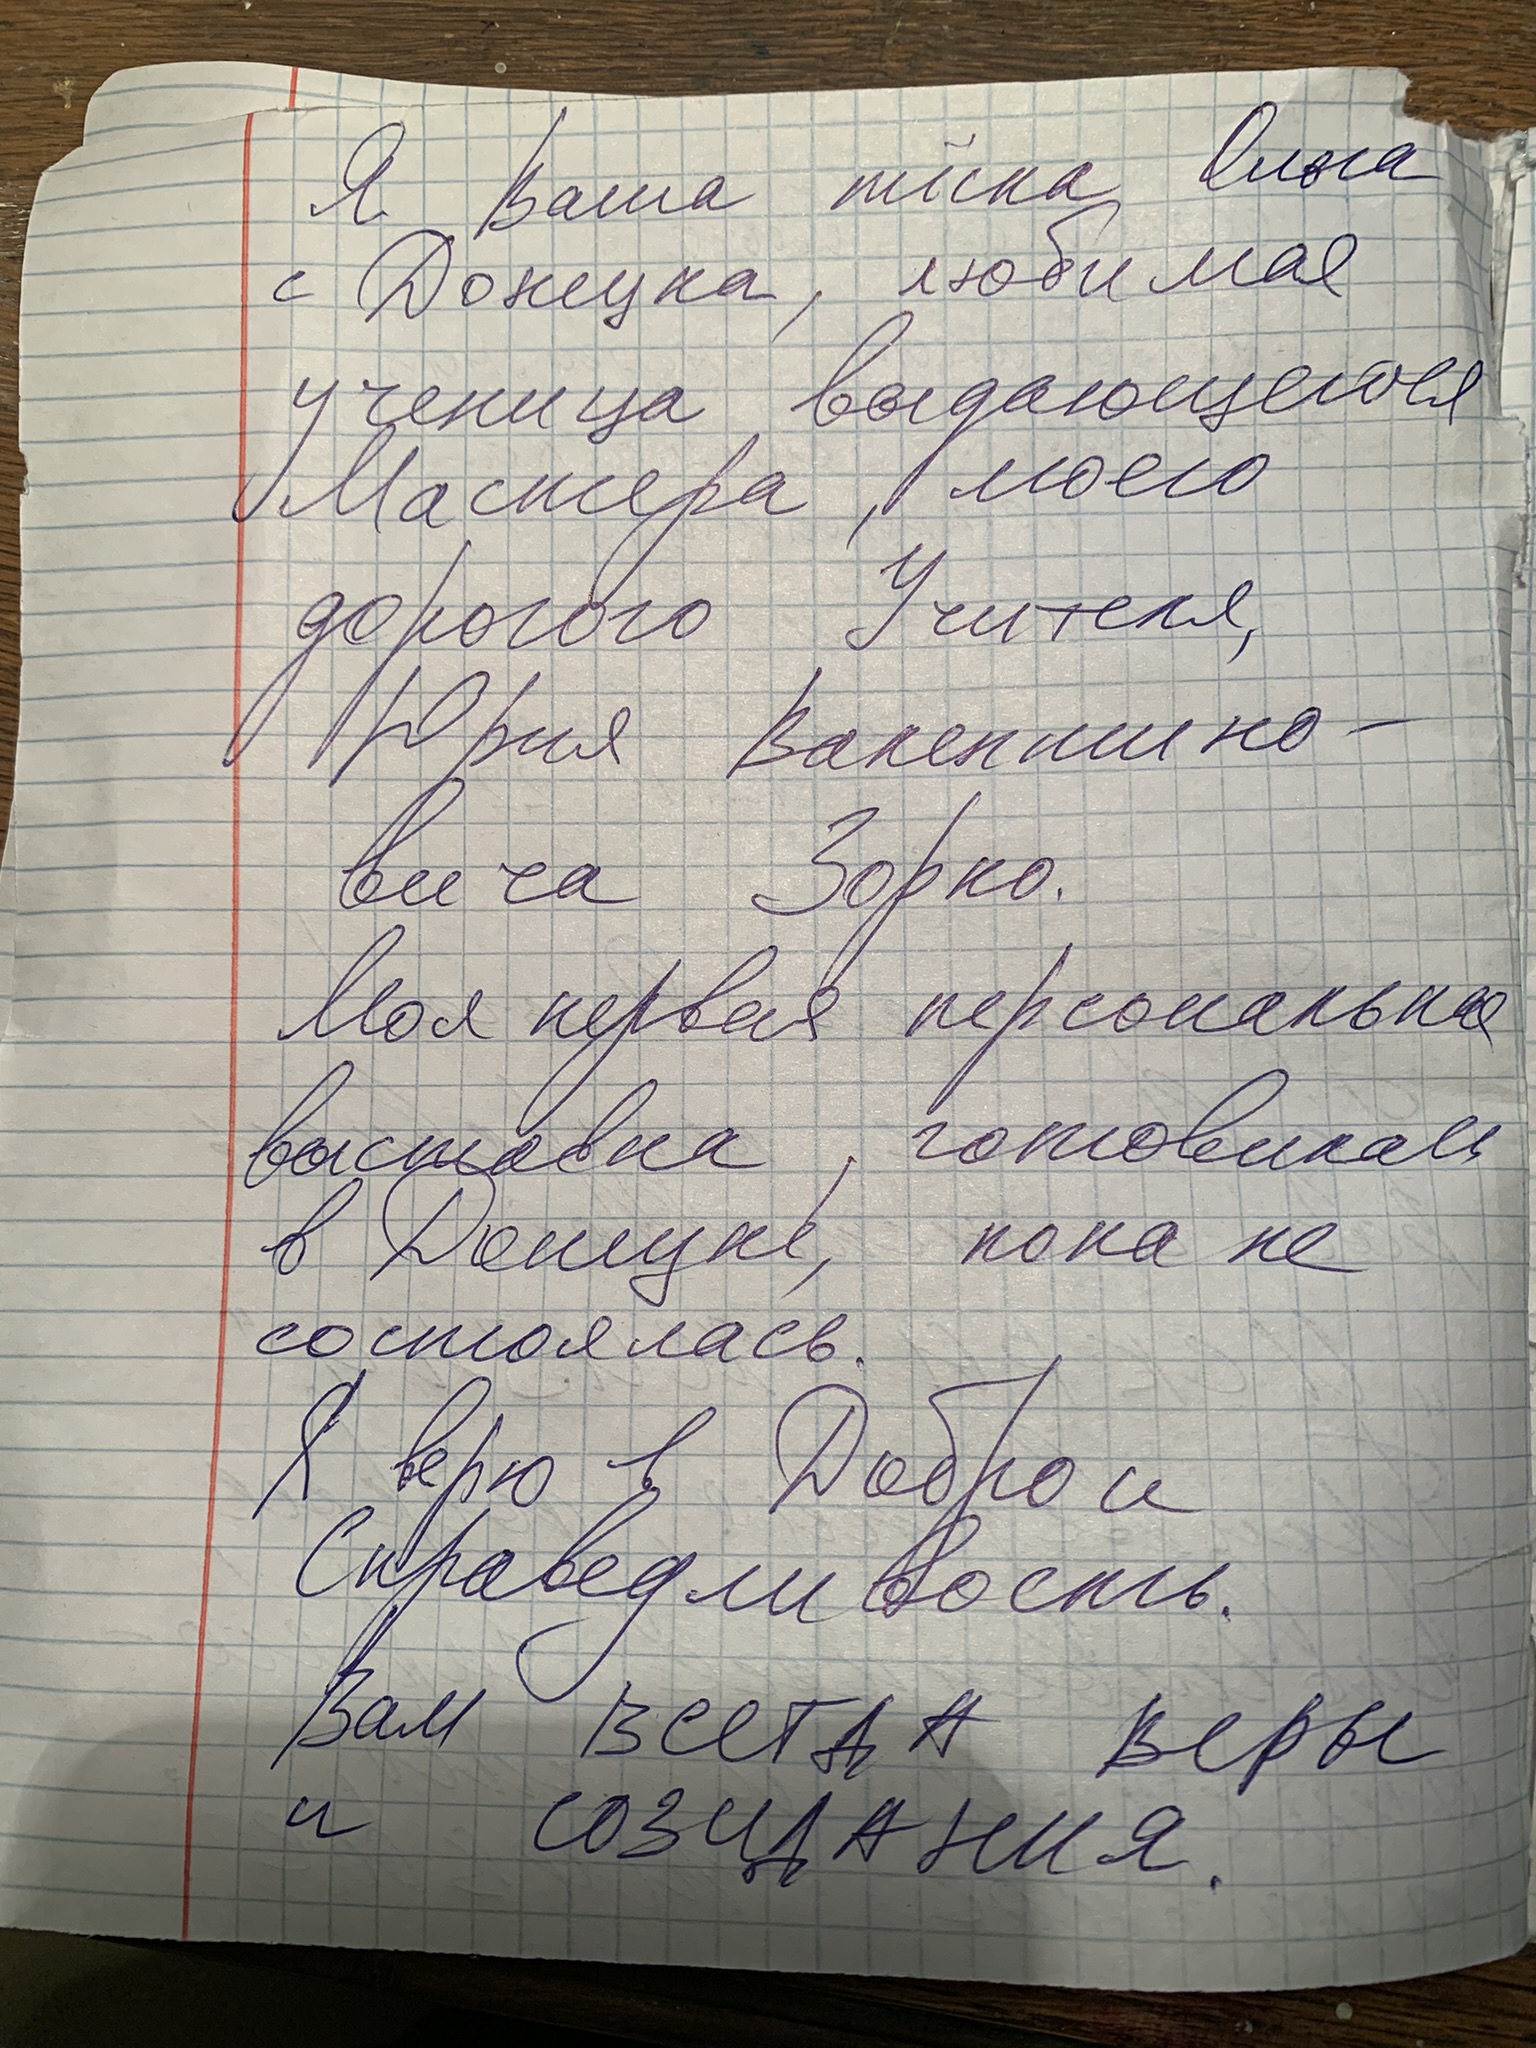 Я Ваша тёска Елена
с Донецка, любимая
ученица выдающегося
Мастера, моего
дорогого Учителя,
Юрия Валентино-
вича Зорко.
Моя первая персональная
выставка, готовилась
в Донецке, пока не
состоялась.
Я верю в Добро и
Справедливость.
Вам всегда веры
и созидания.